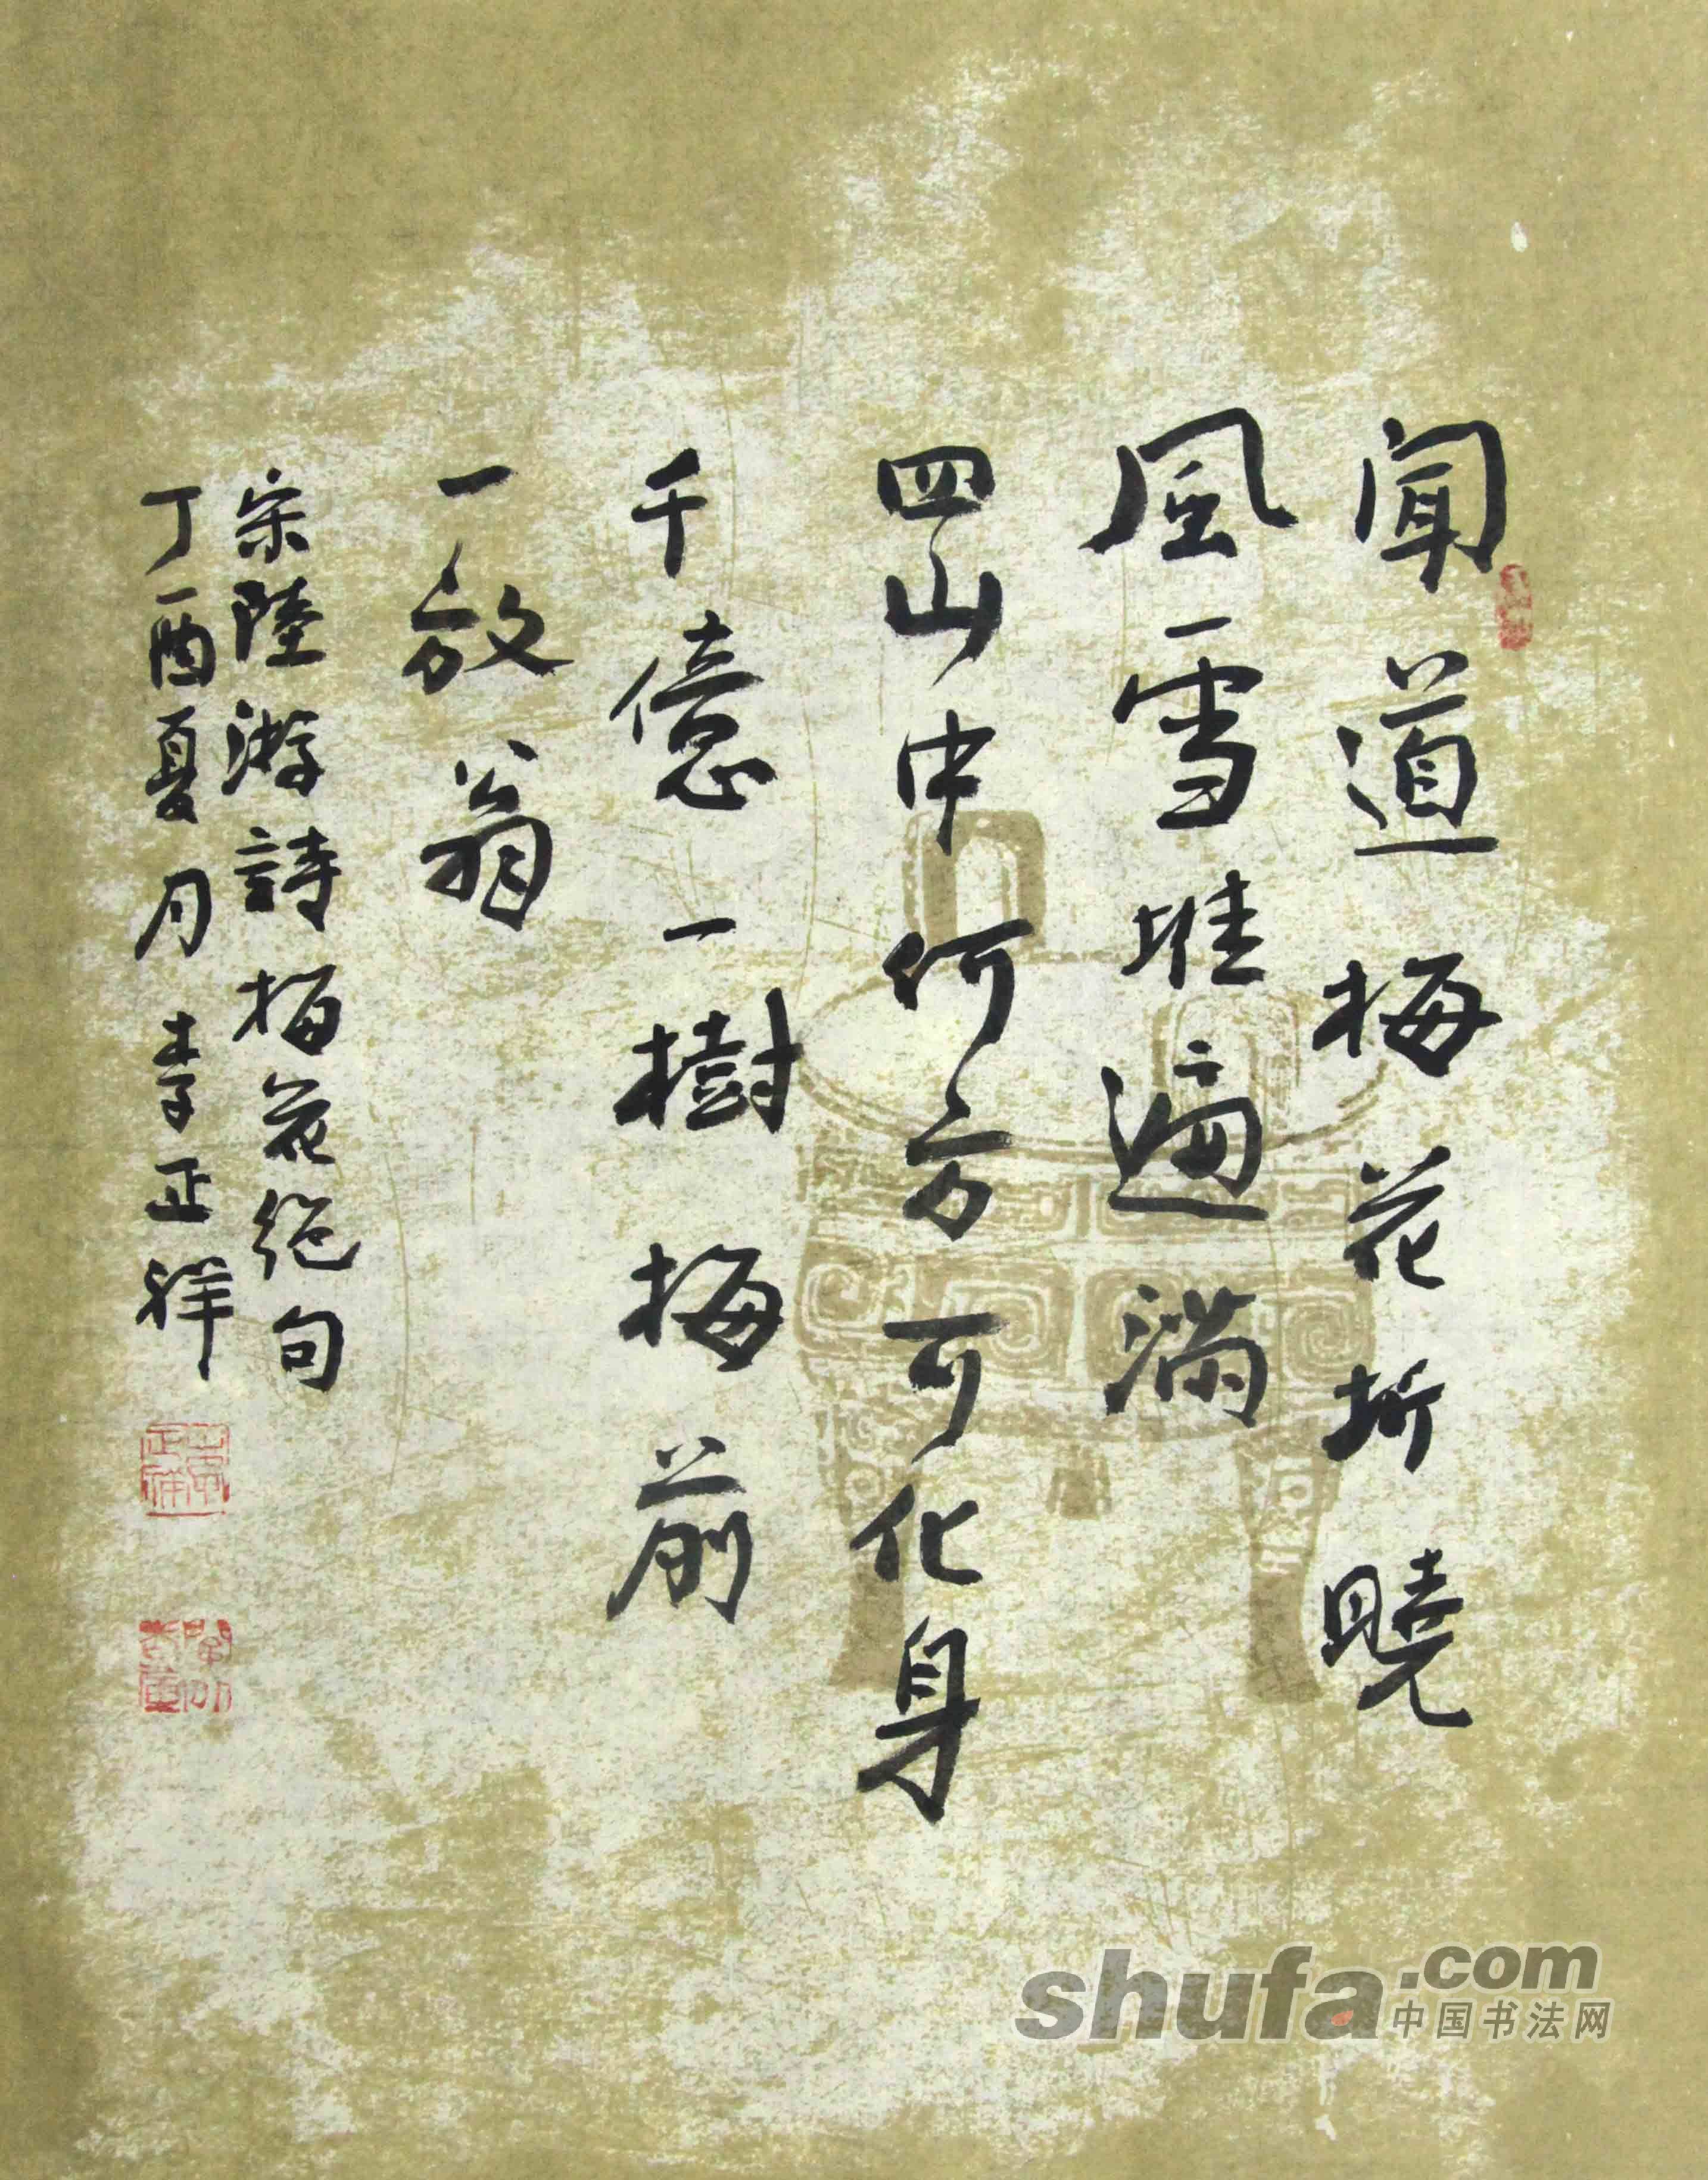 闻道梅花折曉
風雪堆遍滿
四山中何方可化身
千億一樹梅前
一放翁
宋陸游詩梅花絕句
丁酉夏月李正祥
shufa.com
中国书法网